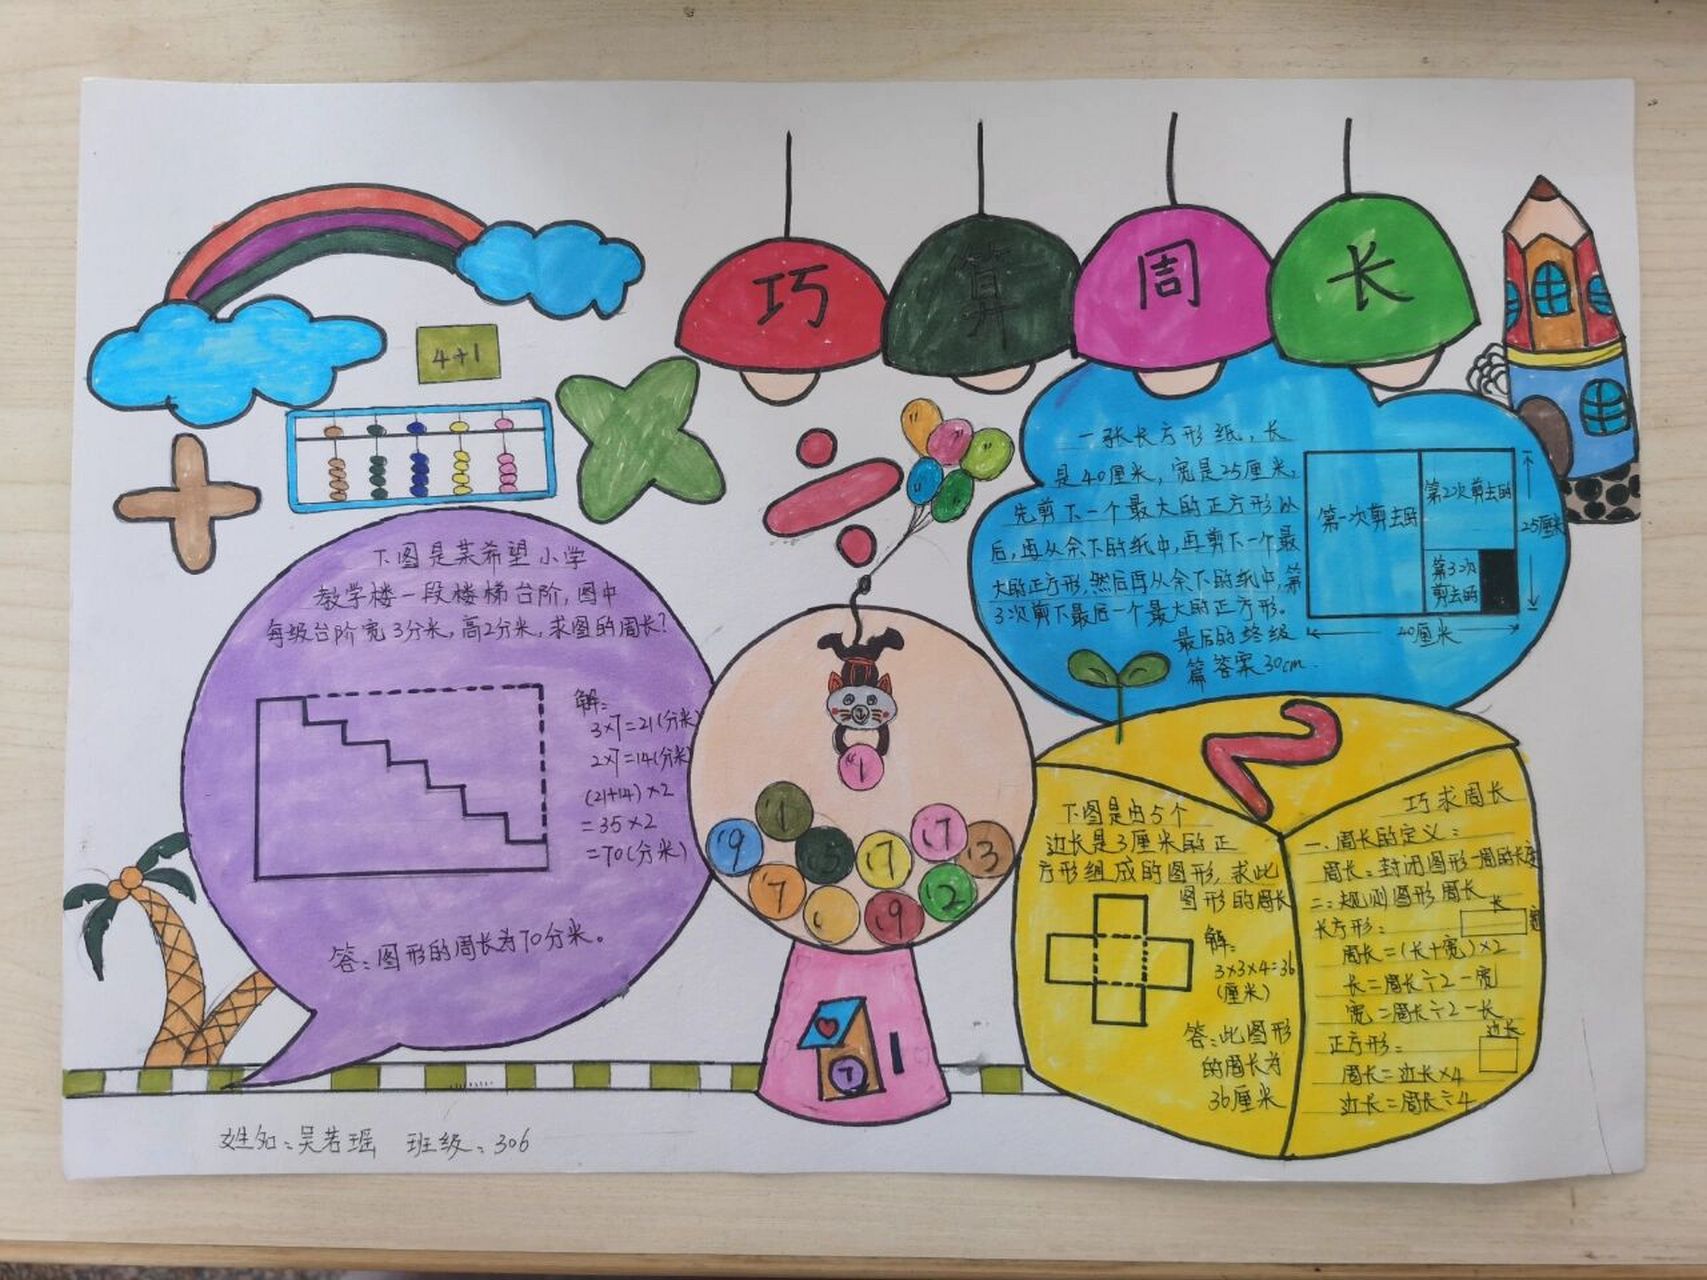 巧算周长
4+1
下图是某希望小学
教学楼一段楼梯台阶,图中
每级台阶宽3分米,高2分米,求图的周长?
解:
3×7=21(分米)
2×7=14(分米)
(21+14)×2
=35×2
=70(分米)
答:图形的周长为70分米。
一张长方形纸,长
是40厘米,宽是25厘米,
先剪下一个最大的正方形以
后,再从余下的纸中,再剪下一个最
大的正方形,然后再从余下的纸中,第
3次剪下最后一个最大的正方形。
最后的终级
篇答案30cm.
第一次剪去的
第2次剪去的
第3次
剪去的
25厘米
40厘米
1
1
9
5
7
7
3
7
9
2
7
下图是由5个
边长是3厘米的正
方形组成的图形,求此
图形的周长
解:
3×3×4=36
(厘米)
答:此图形
的周长为
36厘米
巧求周长
一、周长的定义:
周长:封闭图形一周的长度
二:规则图形周长
长方形:
长
宽
周长=(长+宽)×2
长=周长÷2-宽
宽=周长÷2-长
正方形:
边长
周长=边长×4
边长=周长÷4
姓名:吴若瑶 班级:306